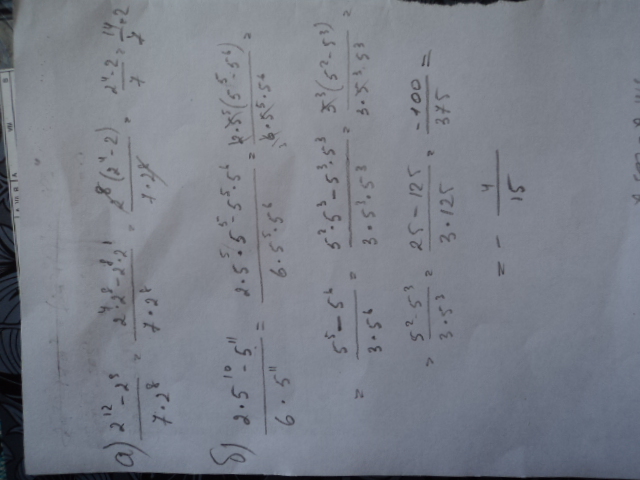 а) (2^12 − 2^9)/(7·2^8) = (2^4·2^8 − 2·2^8)/(7·2^8) = 2^8(2^4 − 2)/(7·2^8) = (2^4 − 2)/7 = 14/7 = 2
б) (2·5^10 − 5^11)/(6·5^11) = (2·5^5·5^5 − 5^5·5^6)/(6·5^5·5^6) = 2·5^5(5^5 − 5^6)/(6·5^5·5^6) =
= (5^5 − 5^6)/(3·5^6) = (5^2·5^3 − 5^3·5^3)/(3·5^3·5^3) = 5^3(5^2 − 5^3)/(3·5^3·5^3) =
= (5^2 − 5^3)/(3·5^3) = (25 − 125)/(3·125) = −100/375 =
= − 4/15